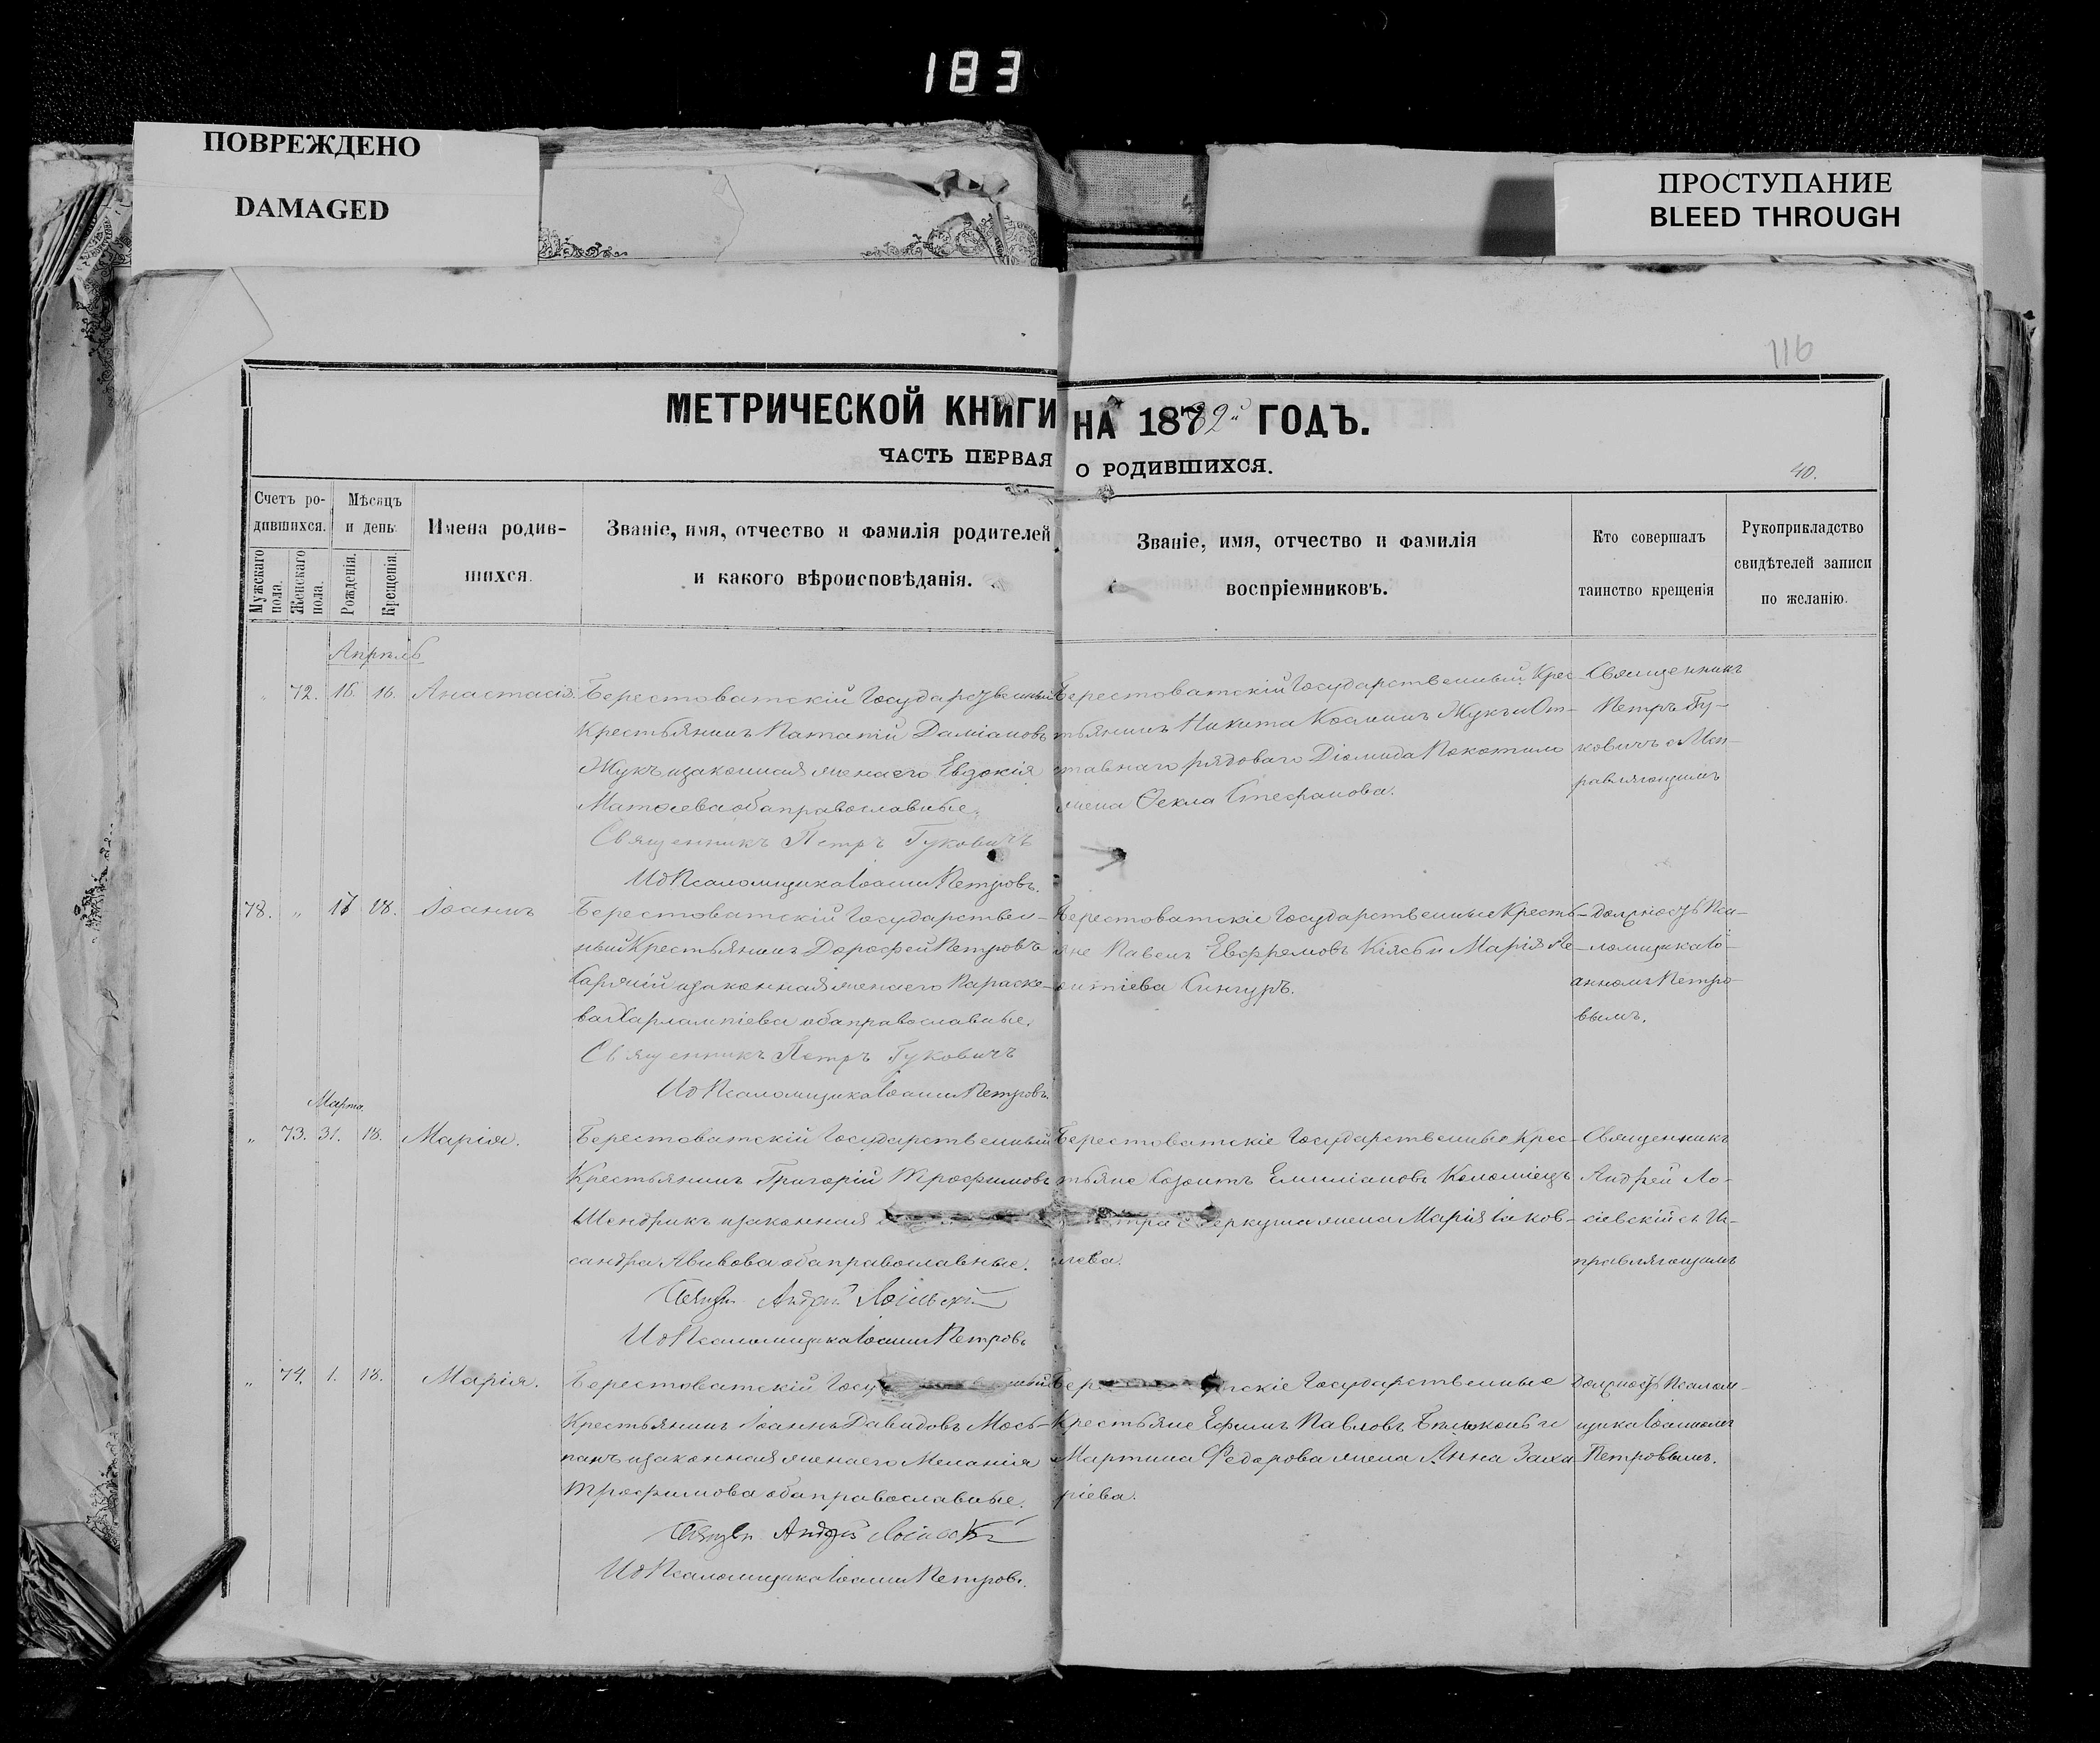 183
ПОВРЕЖДЕНО
DAMAGED
ПРОСТУПАНИЕ
BLEED THROUGH
116
МЕТРИЧЕСКОЙ КНИГИ НА 1882й ГОДЪ.
ЧАСТЬ ПЕРВАЯ О РОДИВШИХСЯ.
40.
Счетъ ро-
дившихся.
Мужскаго пола.
Женскаго пола.
Мѣсяцъ
и день
Рожденія.
Крещенія.
Имена родив-
шихся.
Званіе, имя, отчество и фамилія родителей
и какого вѣроисповѣданія.
Званіе, имя, отчество и фамилія
воспріемниковъ.
Кто совершалъ
таинство крещенія
Рукоприкладство
свидѣтелей записи
по желанію.
Апрѣль
72. 16. 16. Анастасія
Берестоватскій Государственный
Крестьянинъ Потапій Даміановъ
Жукъ и законная жена его Евдокія
Матѳеева оба православные.
Священникъ Петръ Гуковичъ
И д Псаломщика Іоаннъ Петровъ.
Берестоватскій Государственный Крес-
тьянинъ Никита Косминъ Жукъ и От-
ставнаго рядоваго Діомида Покотило
жена Ѳекла Стефанова.
Священникъ
Петръ Гу-
ковичъ с Исп-
равляющимъ
73. " 17 18. Іоаннъ
Берестоватскій Государствен-
ный Крестьянинъ Дорофей Петровъ
и законная жена его Параске-
ва Харлампіева оба православные.
Священникъ Петръ Гуковичъ
И д Псаломщика Іоаннъ Петровъ.
Берестоватскіе Государственные Кресть-
яне Павелъ Евфремовъ и Марія Ле-
онтіева Сингуръ.
Должность Пса-
ломщика Іо-
анномъ Петро-
вымъ.
Марта.
" 73. 31. 18. Марія.
Берестоватскій Государственный
Крестьянинъ Григорій Трофимовъ
Шендрикъ и законная
сандра Авивова оба православные.
Священ. Андрей Лосіевскій
И д Псаломщика Іоаннъ Петровъ
Берестоватскіе Государственные Крес-
тьяне Созонтъ Емиліановъ Коломіецъ
жена Марія Іаков-
лева.
Священникъ
Андрей Ло-
сіевскій съ Ис-
правляющимъ
" 74. 1. 18. Марія.
Берестоватскій
Крестьянинъ Іоаннъ Давидовъ Мось-
панъ и законная жена его Меланія
Трофимова оба православные.
Священ. Андрей Лосіевскій
И д Псаломщика Іоаннъ Петровъ.
Государственные
Крестьяне Ефимъ Павловъ и
Мартина Федорова жена Анна Заха-
ріева.
Должность Псалом-
щика Іоанномъ
Петровымъ.